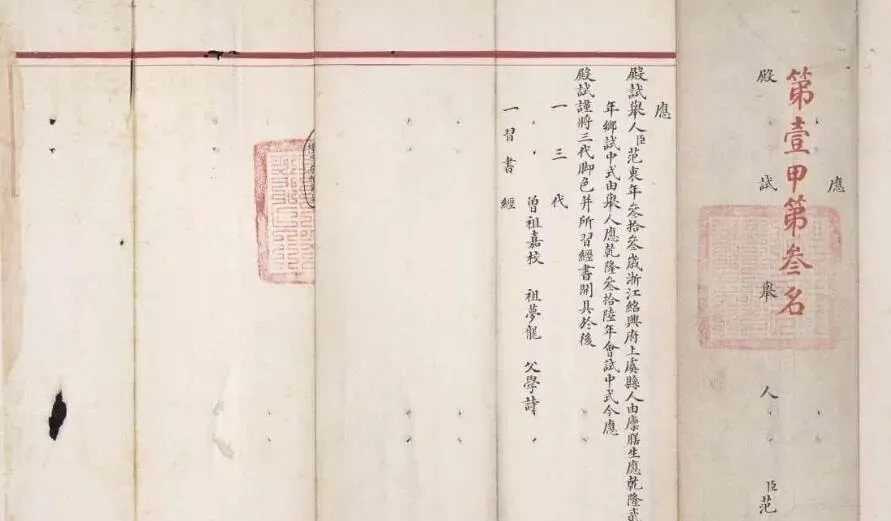 應
第壹甲第叄名
殿試舉人臣范
應
殿試舉人臣范衷年叄拾叄歲浙江紹興府上虞縣人由廩膳生應乾隆貳
年鄉試中式由舉人應乾隆叄拾陸年會試中式今應
殿試謹將三代脚色并所習經書開具於後
一三代
曾祖嘉校 祖夢龍 父學詩
一習書經